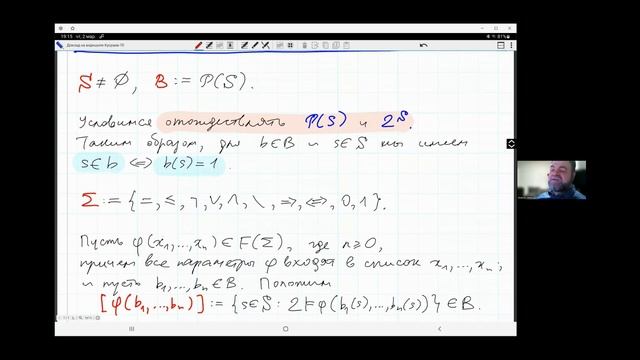 19:15 чт, 2 мар.
81%
Доклад на видеошколе Кусраев-10
S ≠ ∅, B := P(S).
Условимся отождествлять P(S) и 2^S.
Таким образом, для b∈B и s∈S мы имеем
s∈b ⇔ b(s)=1.
Σ := {=, ≤, ⌉, ∨, ∧, \, ⇒, ⇔, 0, 1}.
Пусть φ(x₁,...,xₙ)∈F(Σ), где n≥0,
причем все параметры φ входят в список x₁,...,xₙ,
и пусть b₁,...,bₙ∈B. Положим
[φ(b₁,...,bₙ)] := {s∈S : 2⊨φ(b₁(s),...,bₙ(s))}∈B.